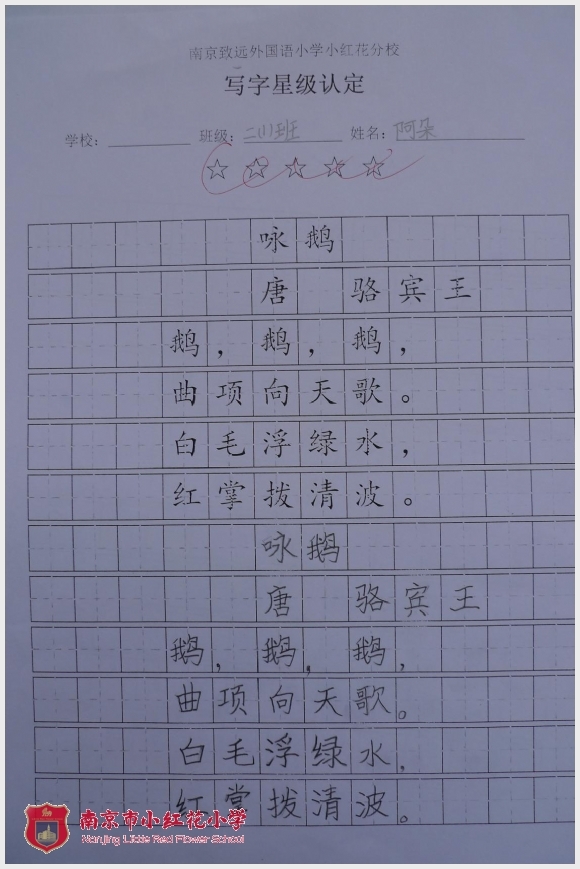 南京致远外国语小学小红花分校
写字星级认定
学校： 班级：二(1)班 姓名：阿朵
咏鹅
唐 骆宾王
鹅，鹅，鹅，
曲项向天歌。
白毛浮绿水，
红掌拨清波。
咏鹅
唐 骆宾王
鹅，鹅，鹅，
曲项向天歌。
白毛浮绿水，
红掌拨清波。
南京市小红花小学
Nanjing Little Red Flower School